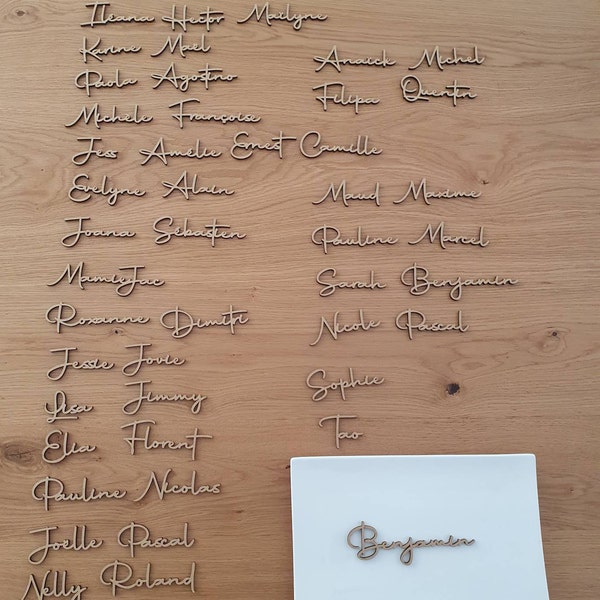 Ileana Hector Maïlyne
Karine Maël
Paola Agostino
Michèle Françoise
Jess Amélie Ernest Camille
Evelyne Alain
Joana Sébastien
MamieJac
Roxanne Dimitri
Jessie Jovie
Lisa Jimmy
Elia Florent
Pauline Nicolas
Joëlle Pascal
Nelly Roland
Anaïck Michel
Filipa Quentin
Maud Maxime
Pauline Marcel
Sarah Benjamin
Nicole Pascal
Sophie
Tao
Benjamin